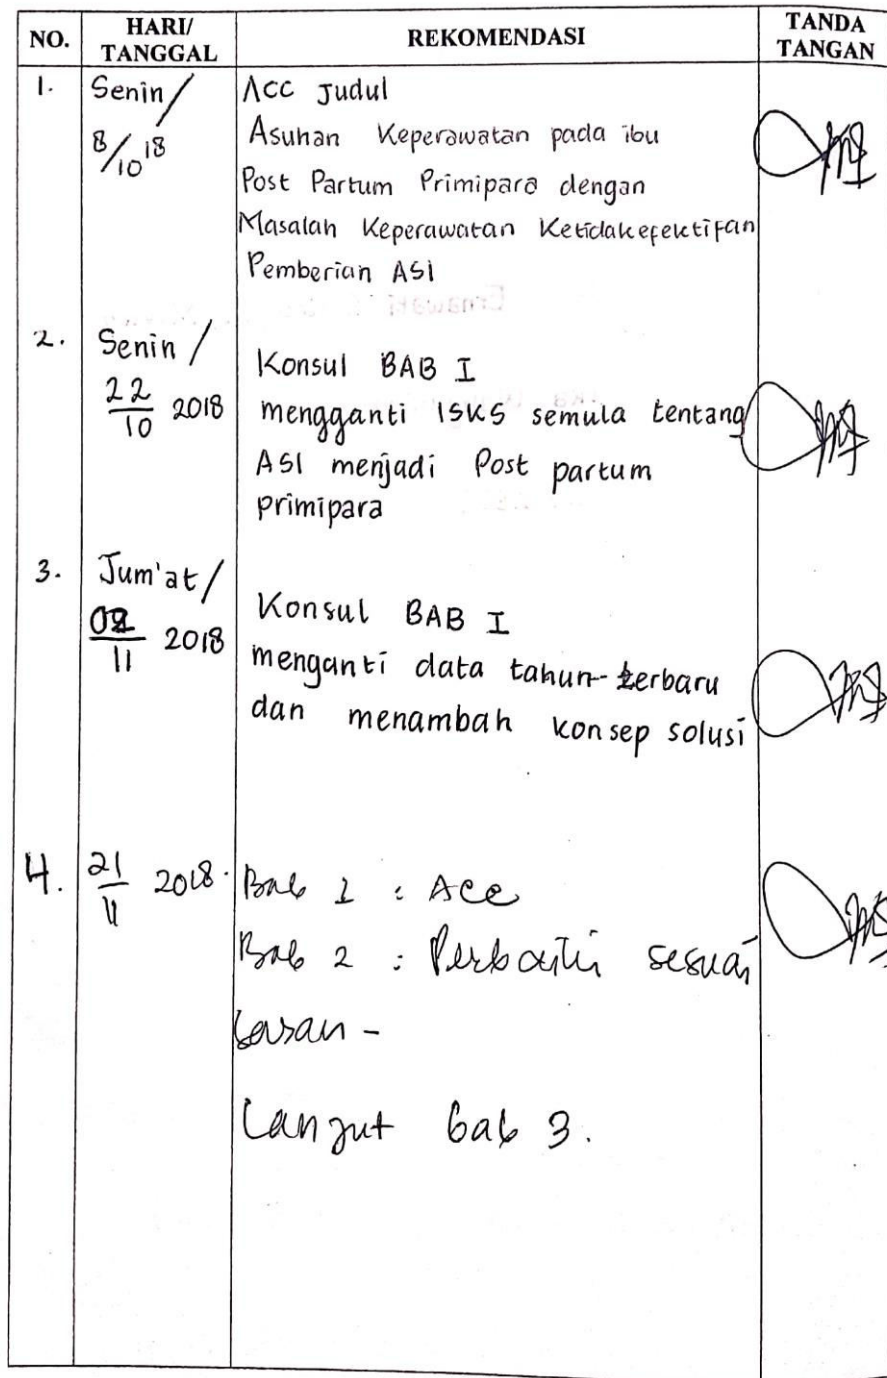 NO. HARI/ TANGGAL REKOMENDASI TANDA TANGAN
1. Senin / 8/10 18 Acc Judul
Asuhan Keperawatan pada ibu
Post Partum Primipara dengan
Masalah Keperawatan Ketidakefektifan
Pemberian ASI
2. Senin / 22/10 2018 Konsul BAB I
mengganti ISKS semula tentang
ASI menjadi Post partum
primipara
3. Jum'at / 02/11 2018 Konsul BAB I
menganti data tahun terbaru
dan menambah konsep solusi
4. 21/11 2018. Bab 1 : Acc
Bab 2 : Perbaiki sesuai
saran -
Lanjut bab 3.